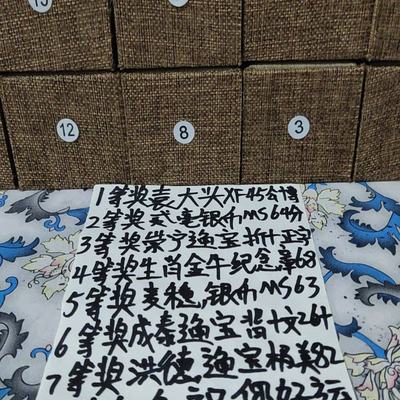 12
8
3
1等奖袁大头XF45公博
2等奖武毫银币MS64分
3等奖崇宁通宝折十正字
4等奖生肖金牛纪念章68
5等奖麦穗银币MS63
6等奖咸泰通宝背十文264
7等奖洪德通宝极美82